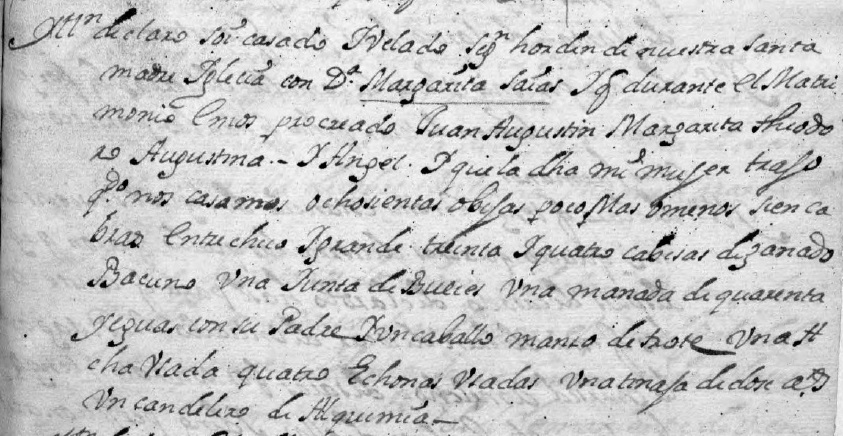 Yttn declaro soi casado Y Velado Segn horden de nuestra santa
madre Yglecia con Da Margarita Salas Y q durante el Matri
monio emos procreado Juan Augustin Margarita theodo
ro Augustina - Y Angel. Y que la dha mi muger trajo
qdo nos casamos ochosientas obejas poco Mas o menos sien ca
bras entre chico Y grande treinta Y quatro cabesas de ganado
Bacuno Una Yunta de Bueies Una manada de quarenta
Yeguas con su Padre Y un caballo manso de trote Una A
cha Usada quatro Echonas Usadas Una tinaja de dose as
Un candelero de Alquimia